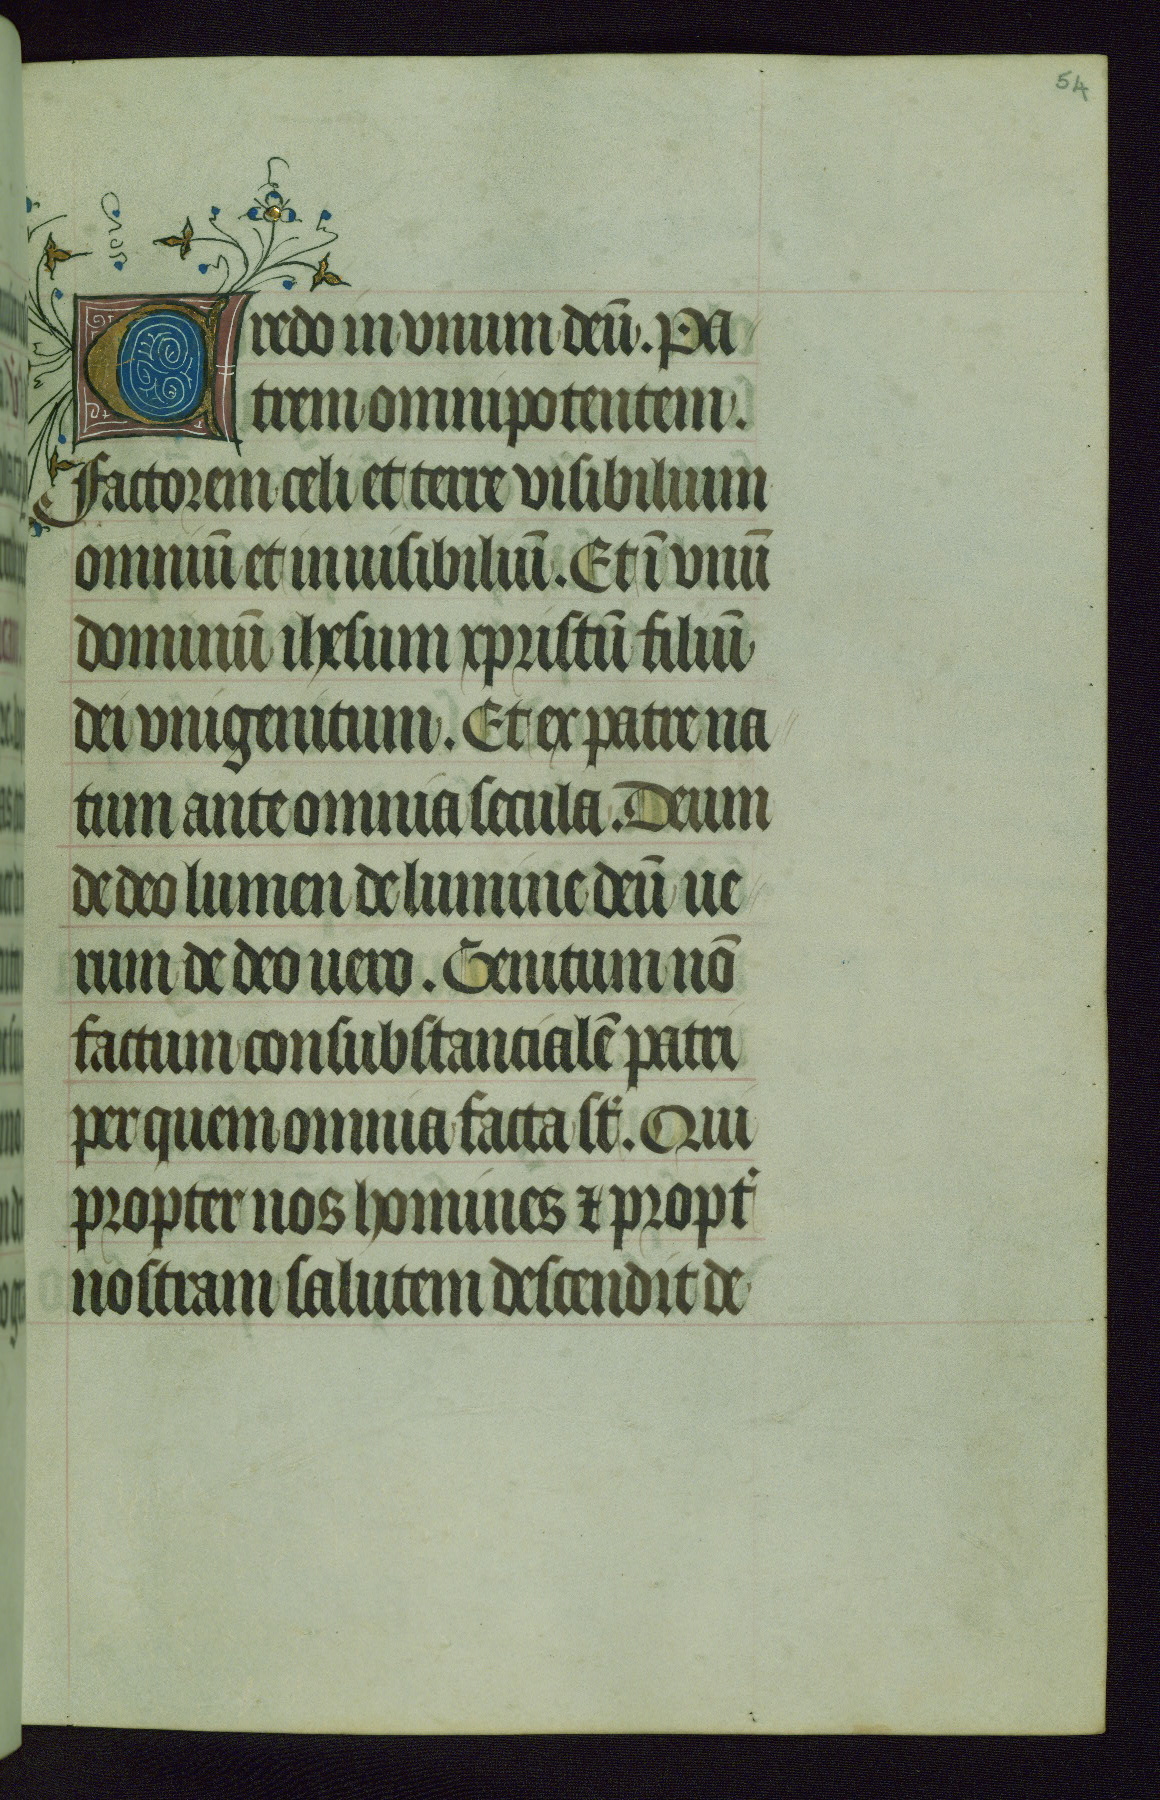 54
Credo in vnum deū. Pa
trem omnipotentem.
factorem celi et terre visibilium
omniū et inuisibiliū. Et ī vnū
dominū ihesum xpristū filiū
dei vnigenitum. Et ex patre na
tum ante omnia secula. Deum
de deo lumen de lumine deū ue
rum de deo uero. Genitum nō
factum consubstancialē patri
per quem omnia facta st̄. Qui
propter nos homines ⁊ propt̾
nostram salutem descendit de